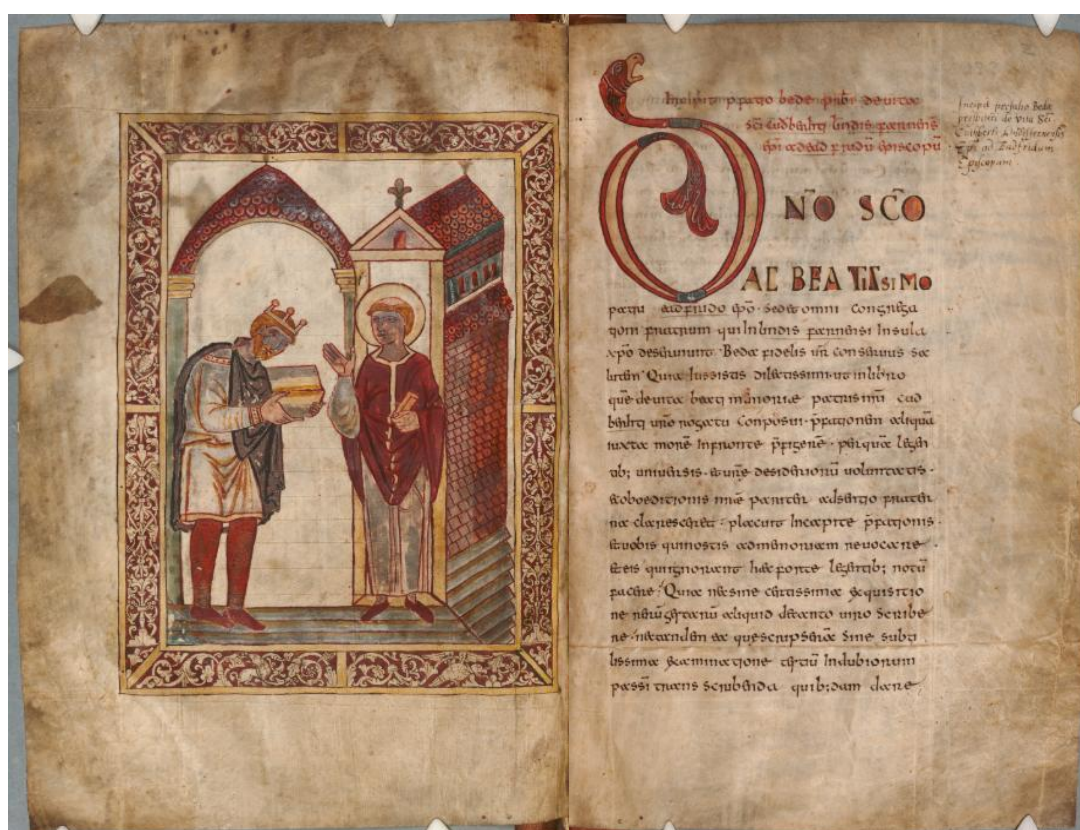 Incipit p̄fatio bede p̄sb̄i de uita
sc̄i cudberhti lindisfarnensis
ep̄i ad eadfridum episcopū
Incipit prefatio Bede
presbiteri de vita Sci
Ep̄i ad Eadfridum
Episcopum.
DNO SCO
AC BEATISSIMO
patri eadfrido ep̄o. sed et omni congrega
tioni fratrum qui in lindisfarnensi insula
xp̄o deseruiunt. Beda fidelis ur̄ conseruus sa
lutem. Quia iussistis dilectissimi ut in libro
quē de uita beatę memoriae patris nr̄i cud
berhti uro rogatu composui. p̄fationem aliquā
iuxta morē in fronte p̄figerē. per quā legen
tib; uniuersis. et ur̄e desideriorū uoluntatis.
et oboeditionis meae pariter adsensio frater
na claresceret. placuit in capite p̄fationis.
et uobis qui nostis ad memoriam reuocare
et eis qui ignorant haec forte legentib; notū
facere. Quia nec sine certissima exquisitio
ne rerū gestarū aliquid de tanto uiro scribe
re. nec tandem ea quę scripserā sine subti
lissima examinatione testiū indubiorum
passi transscribenda quib;dam dare